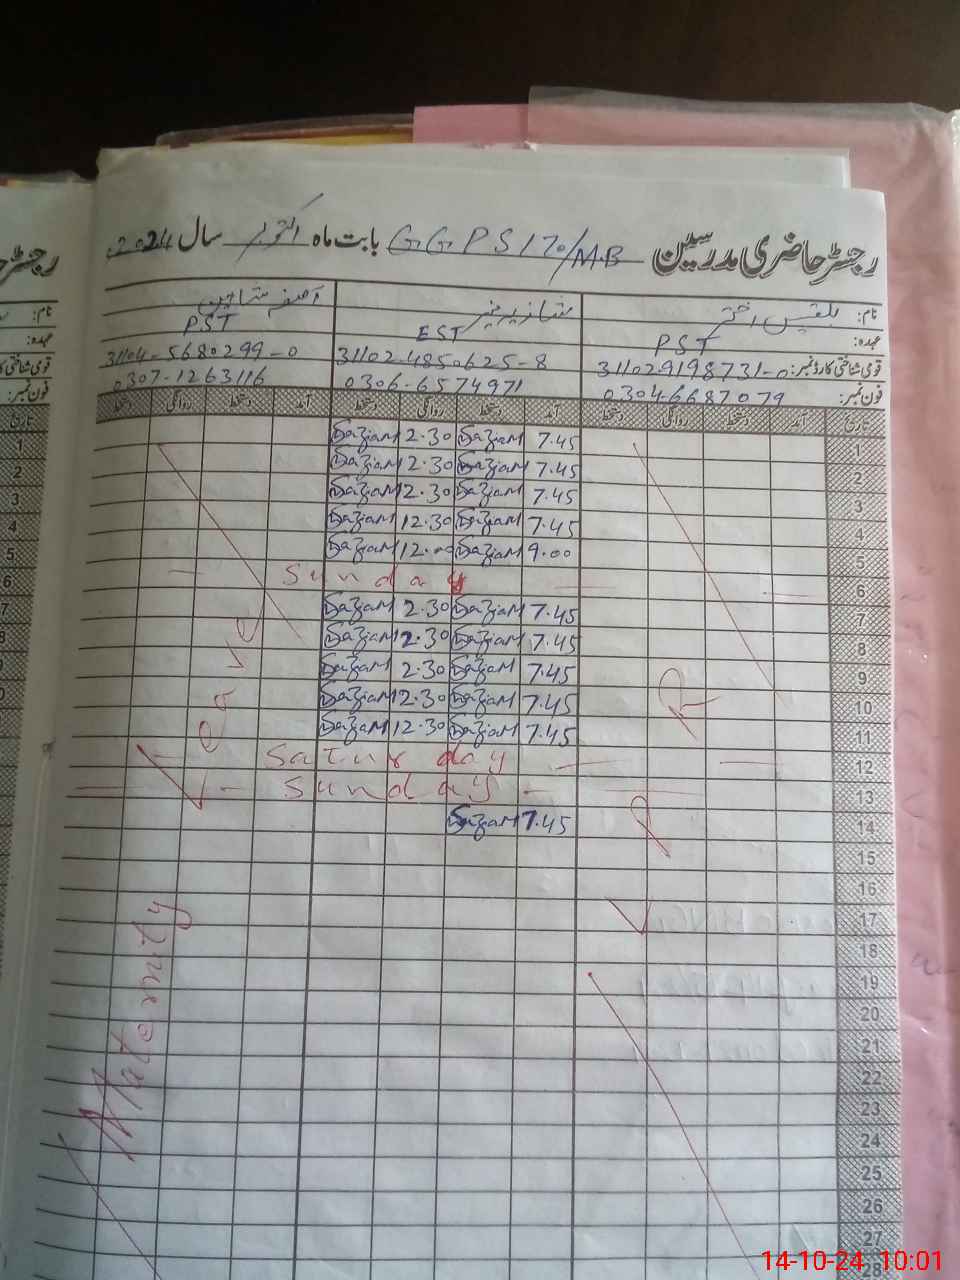 رجسٹر حاضری مدرسین GGPS 170/M.B بابت ماہ اکتوبر سال 2024
نام: بلقیس اختر شازیہ منیر آصفہ شاہین
عہدہ: PST EST PST
قومی شناختی کارڈ نمبر: 311029198731-0 31102-4850625-8 31104-5680299-0
فون نمبر: 03046687079 0306-6574971 0307-1263116
تاریخ آمد دستخط روانگی دستخط آمد دستخط روانگی دستخط آمد دستخط روانگی دستخط
1 7.45 SaziaM 2.30 SaziaM 1
2 7.45 SaziaM 2.30 SaziaM 2
3 7.45 SaziaM 2.30 SaziaM 3
4 7.45 SaziaM 12.30 SaziaM 4
5 9.00 SaziaM 12.00 SaziaM 5
6 Sunday 6
7 7.45 SaziaM 2.30 SaziaM 7
8 7.45 SaziaM 2.30 SaziaM 8
9 7.45 SaziaM 2.30 SaziaM 9
10 7.45 SaziaM 2.30 SaziaM
11 7.45 SaziaM 12.30 SaziaM
12 Saturday
13 Sunday
14 7.45 SaziaM
15
16
17
18
19
20
21
22
23
24
25
26
27
28
Maternity Leave
14-10-24 10:01